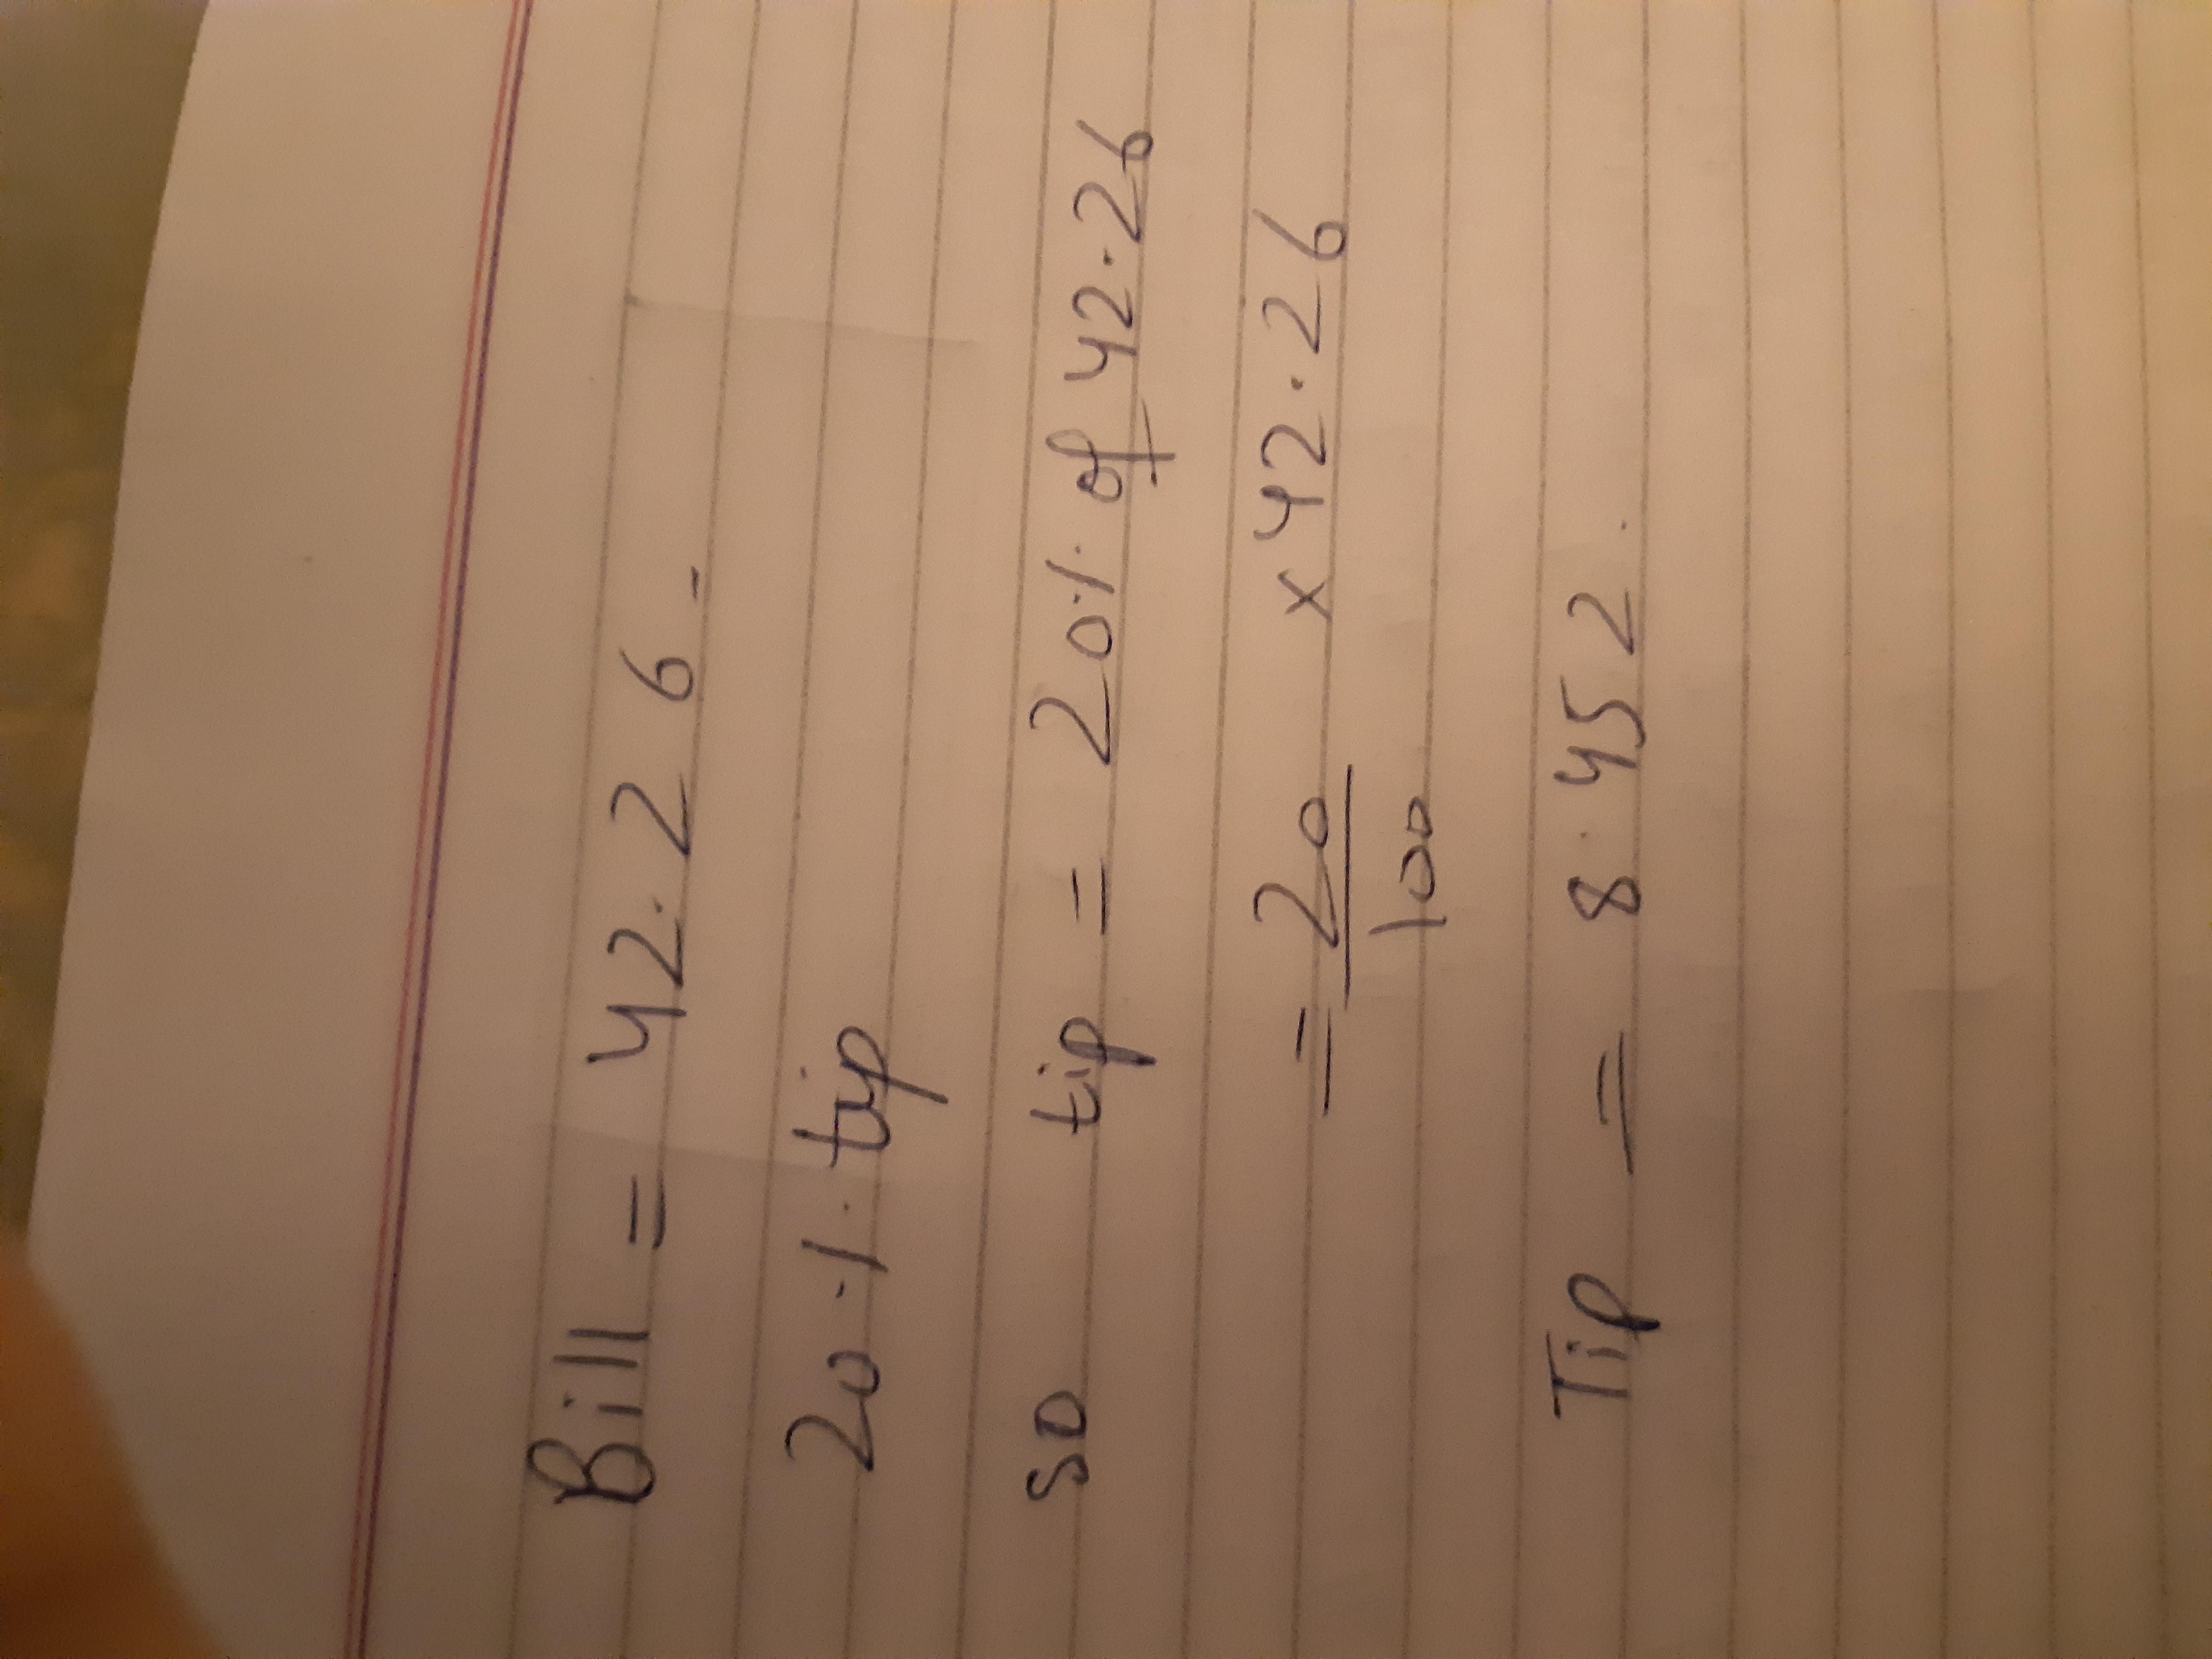 Bill = 42.26-
20% tip
so tip = 20% of 42.26
= 20/100 x 42.26
Tip = 8.452.